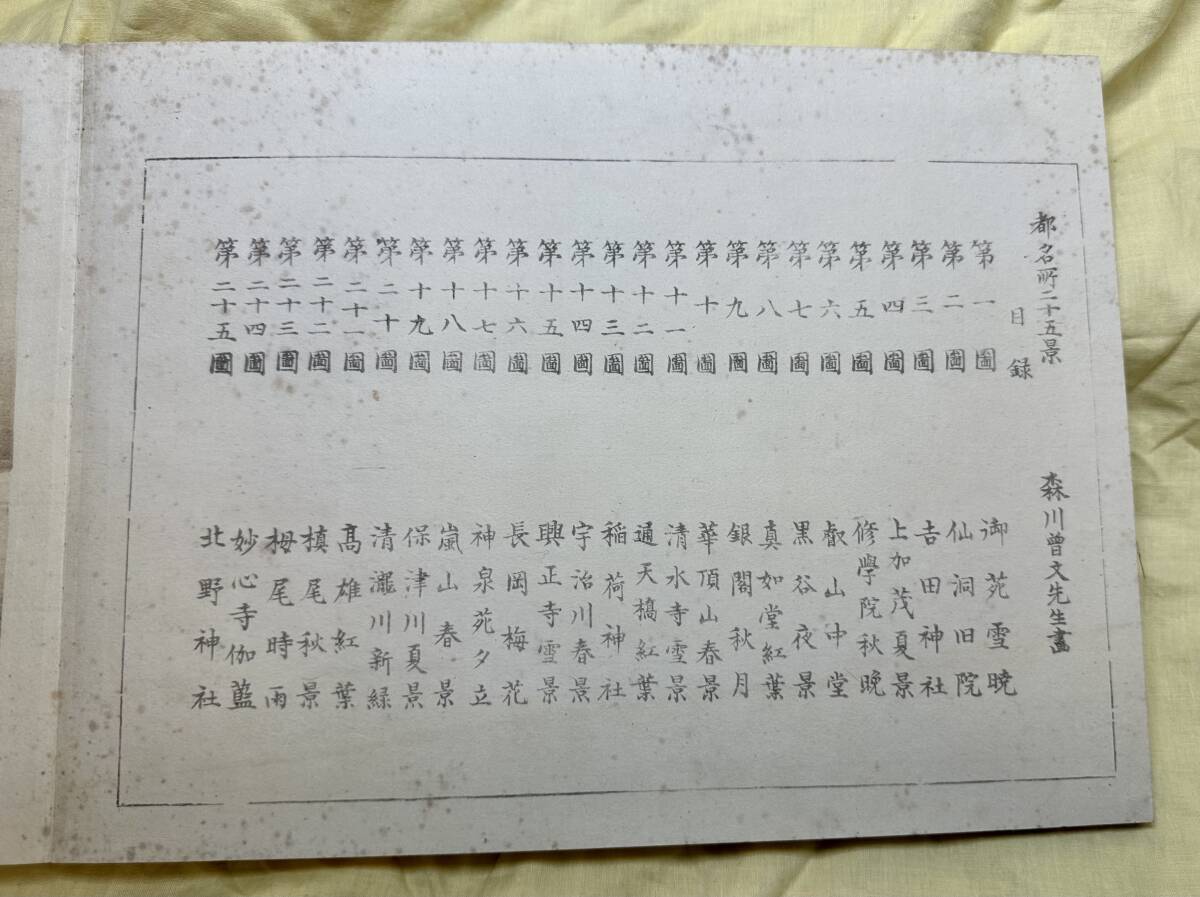 都名所二十五景
目録
森川曾文先生畫
第一圖 御苑雪暁
第二圖 仙洞旧院
第三圖 吉田神社
第四圖 上加茂夏景
第五圖 修學院秋晩
第六圖 叡山中堂
第七圖 黒谷夜景
第八圖 真如堂紅葉
第九圖 銀閣秋月
第十圖 華頂山春景
第十一圖 清水寺雪景
第十二圖 通天橋紅葉
第十三圖 稲荷神社
第十四圖 宇治川春景
第十五圖 興正寺雪景
第十六圖 長岡梅花
第十七圖 神泉苑夕立
第十八圖 嵐山春景
第十九圖 保津川夏景
第二十圖 清瀧川新緑
第二十一圖 髙雄紅葉
第二十二圖 槙尾秋景
第二十三圖 栂尾時雨
第二十四圖 妙心寺伽藍
第二十五圖 北野神社